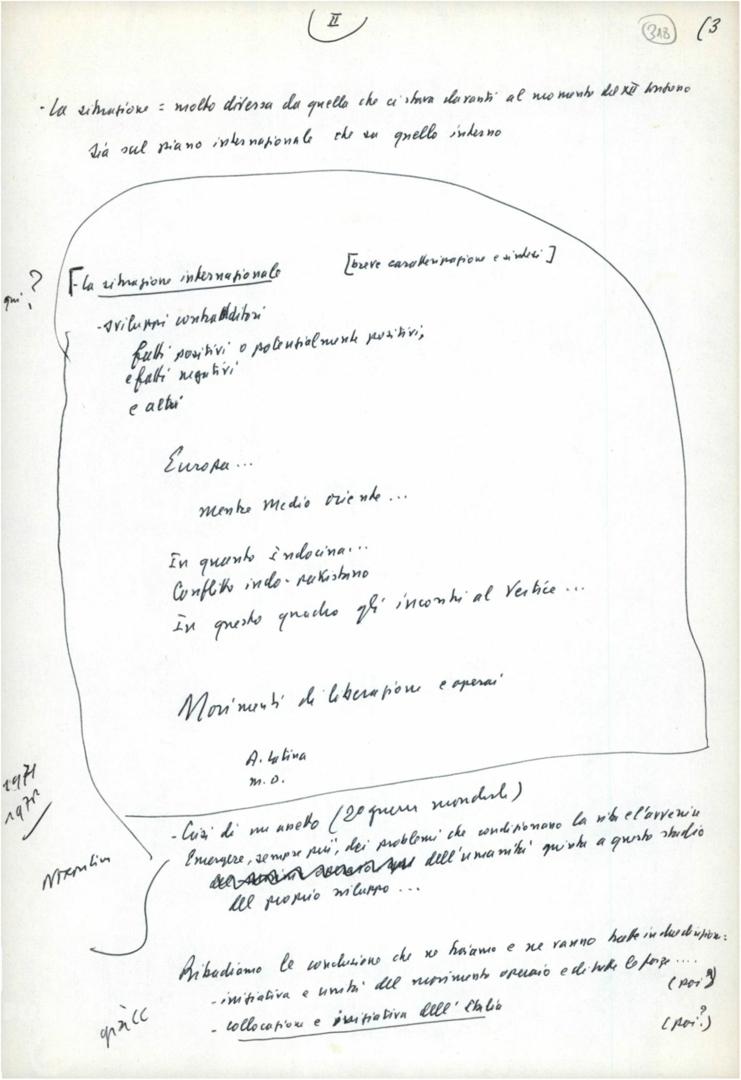 II
318 (3
- La situazione = molto diversa da quella che ci stava davanti al momento del XII
sia sul piano internazionale che su quello interno
qui?
[- La situazione internazionale [breve caratterizzazione e sintesi]
- sviluppi contraddittori
fatti positivi o potenzialmente positivi,
e fatti negativi
e altri
Europa...
mentre Medio Oriente...
In quanto Indocina...
Conflitto indo-pakistano
In questo quadro gli incontri al vertice...
Movimenti di liberazione e operai
A. Latina
M.O.
1971
1972
- Crisi di un assetto (2a guerra mondiale)
Emergere, sempre più, dei problemi che condizionano la vita e l'avvenire
dell'umanità giunta a questo stadio
del proprio sviluppo...
Ribadiamo le conclusioni che ne traiamo e ne vanno tratte in due direzioni:
- iniziativa e unità del movimento operaio e di tutte le forze.... (poi?)
già CC
- collocazione e iniziativa dell'Italia (poi?)